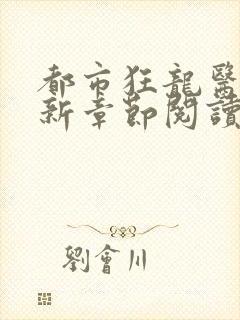 都市狂龍醫
新章節閱讀
劉會川